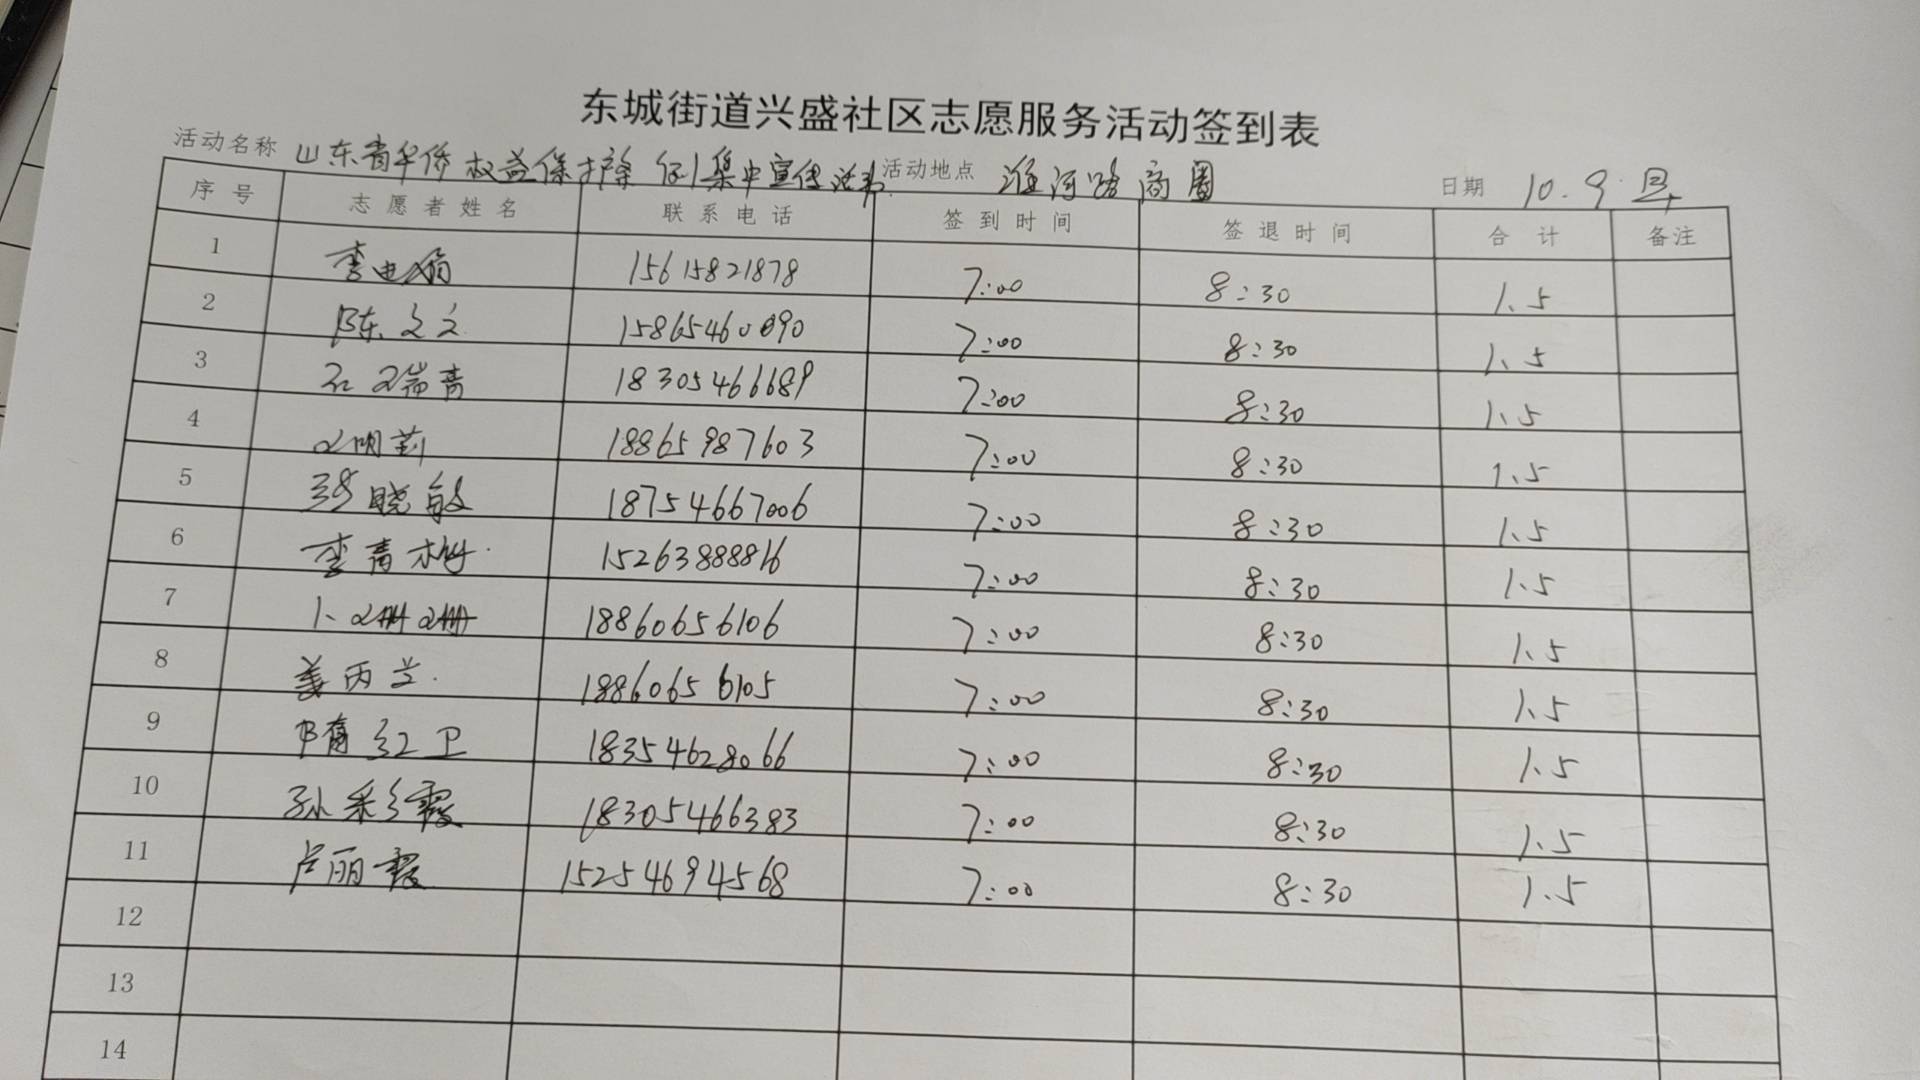 东城街道兴盛社区志愿服务活动签到表
活动名称 山东省华侨权益保护条例集中宣传活动 活动地点 淮河路商圈 日期 10.9 早
序号 志愿者姓名 联系电话 签到时间 签退时间 合计 备注
1 李 15615821878 7:00 8:30 1.5
2 陈文文 15865460890 7:00 8:30 1.5
3 石瑞青 18305466689 7:00 8:30 1.5
4 18865987603 7:00 8:30 1.5
5 张晓敏 18754667006 7:00 8:30 1.5
6 李青 15263888816 7:00 8:30 1.5
7 卜珊珊 18860656106 7:00 8:30 1.5
8 姜丙兰 18860656105 7:00 8:30 1.5
9 红卫 18354628066 7:00 8:30 1.5
10 孙彩霞 18305466383 7:00 8:30 1.5
11 卢丽霞 15254694568 7:00 8:30 1.5
12
13
14